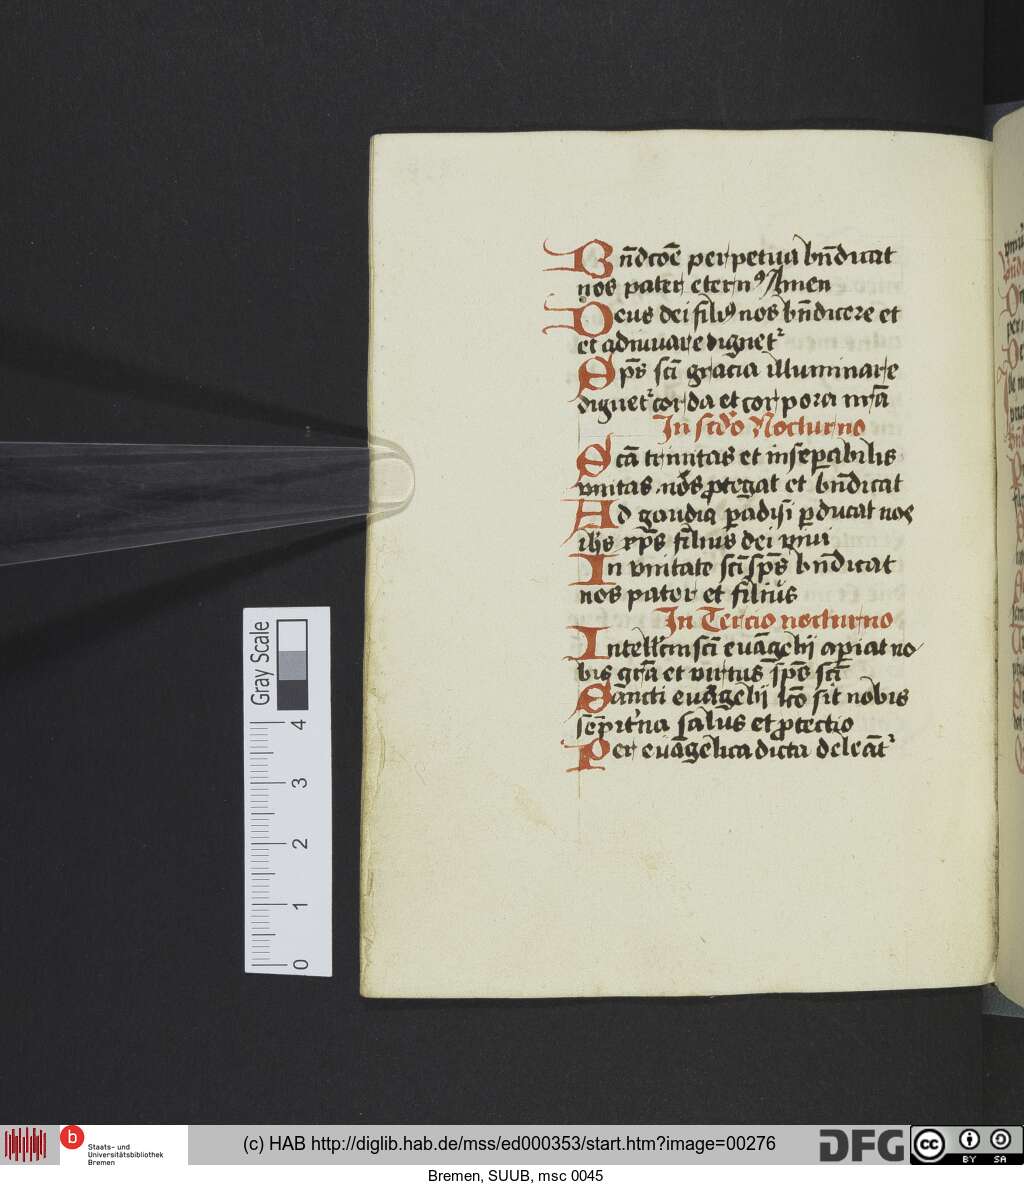 Bn̄dcōe perpetua bn̄dicat
nos pater etern⁹ Amen
Deus dei fili⁹ nos bn̄dicere et
et adiuuare dignet᷑
Sp̄s sc̄i gracia illuminare
dignet᷑ corda et corpora nr̄a
In scd̄o Nocturno
Sc̄a trinitas et inseꝑabilis
vnitas nos ꝓtegat et bn̄dicat
Ad gaudia ꝑadisi ꝑducat nos
ih̄s xp̄s filius dei viui
In vnitate sc̄i sp̄s bn̄dicat
nos pater et filius
In Tercio nocturno
Intell̄cm sc̄i euāgelij aꝑiat no
bis gr̄a et virtus sp̄s sc̄i
Sancti euāgelij lc̄o sit nobis
semꝑit'na salus et ꝓtectio
Per euāgelica dicta deleāt᷑
Gray Scale
4
3
2
1
0
b
Staats- und
Universitätsbibliothek
Bremen
(c) HAB http://diglib.hab.de/mss/ed000353/start.htm?image=00276
DFG
cc
BY SA
Bremen, SUUB, msc 0045